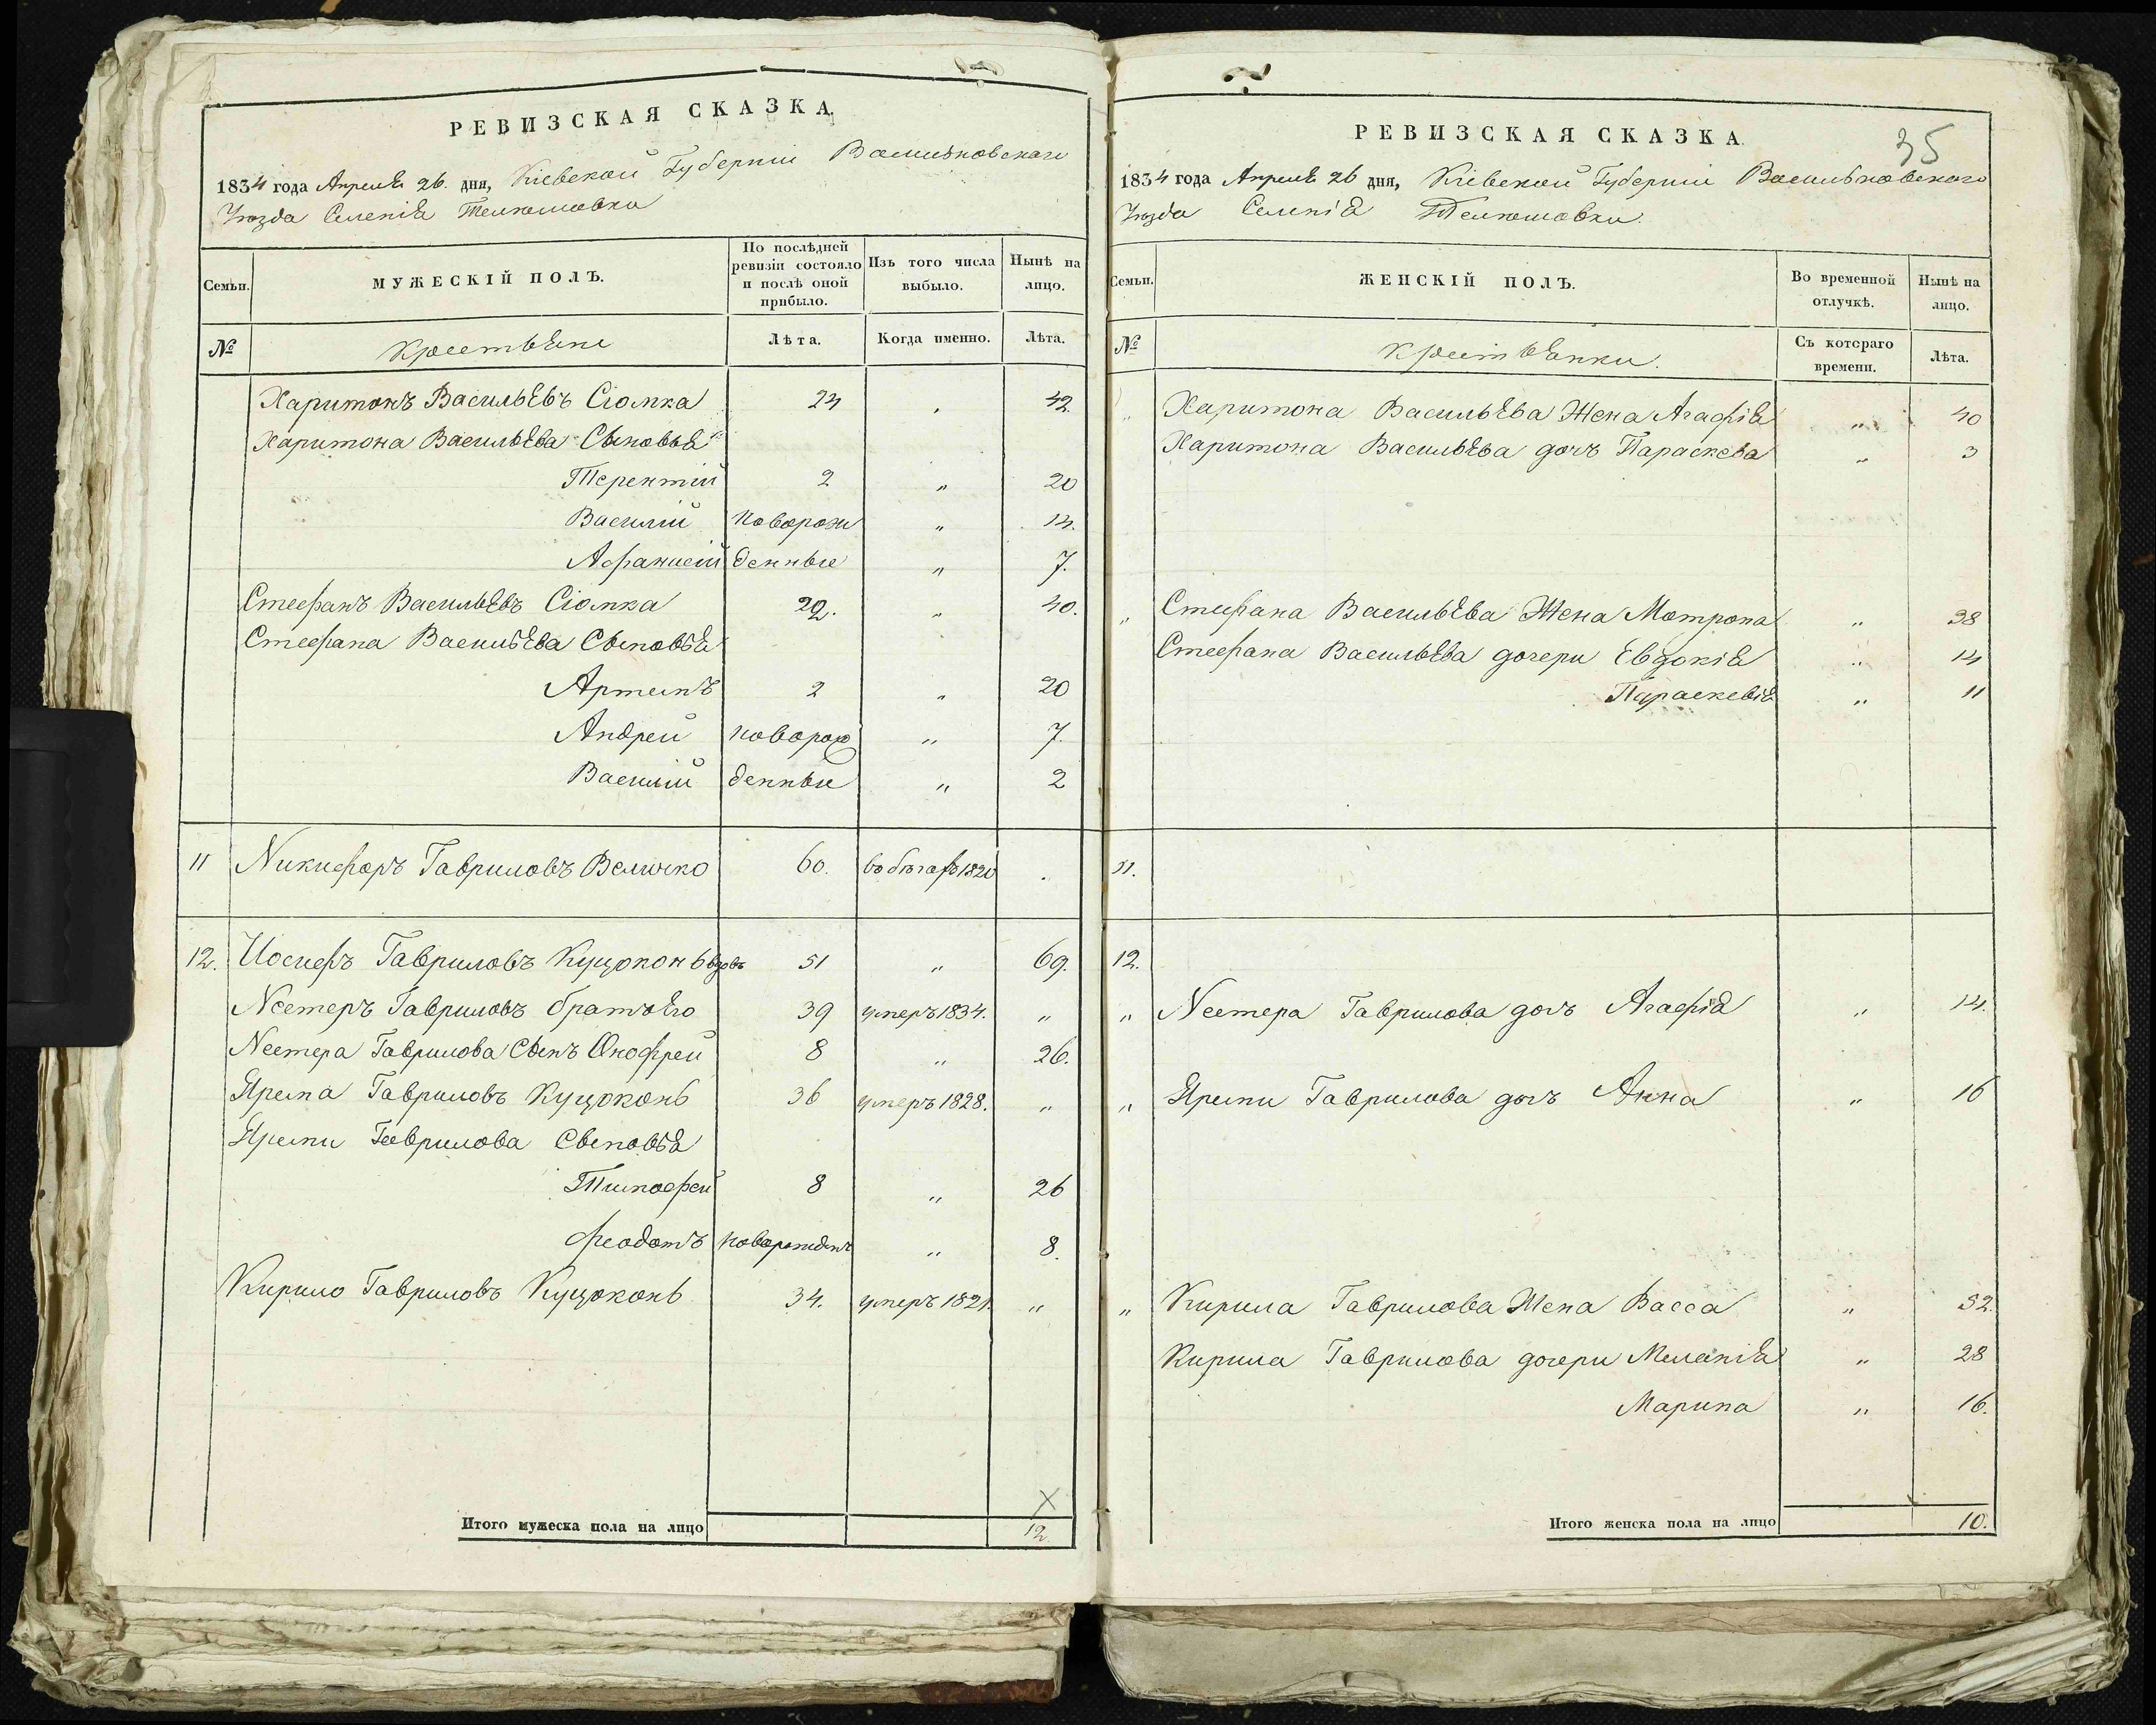 РЕВИЗСКАЯ СКАЗКА.
1834 года Апреля 26. дня, Кіевской Губерніи Васильковскаго
Уѣзда Селенія Телюшовки
Семьи.
МУЖЕСКІЙ ПОЛЪ.
По послѣдней ревизіи состояло и послѣ оной прибыло.
Изъ того числа выбыло.
Нынѣ на лицо.
№
Крестьяне
Лѣта.
Когда именно.
Лѣта.
Харитонъ Васильевъ Сіомка 24 „ 42.
Харитона Васильева Сыновья
Терентій 2 „ 20
Василій новорож „ 14.
Афанасій денные „ 7.
Стефанъ Васильевъ Сіомка 22. „ 40.
Стефана Васильева Сыновья
Артемъ 2 „ 20
Андрей новорож „ 7.
Василій денные „ 2
11 Никифоръ Гавриловъ Величко 60. въ бѣгахъ 1820 „
12. Иосифъ Гавриловъ Куцоконь вдовъ 51 „ 69.
Нестеръ Гавриловъ братъ Его 39 умеръ 1834. „
Нестера Гаврилова Сынъ Онофрей 8 „ 26.
Ярема Гавриловъ Куцоконь 36 умеръ 1828. „
Яремы Гаврилова Сыновья
Тимофей 8 „ 26
Феодотъ новорожденъ „ 8.
Кирило Гавриловъ Куцоконь 34. умеръ 1821. „
Х
Итого мужеска пола на лицо 12
35
РЕВИЗСКАЯ СКАЗКА.
1834 года Апреля 26 дня, Кіевской Губерніи Васильковскаго
Уѣзда Селенія Телюшовки.
Семьи.
ЖЕНСКІЙ ПОЛЪ.
Во временной отлучкѣ.
Нынѣ на лицо.
№
Крестьянки.
Съ котораго времени.
Лѣта.
„ Харитона Васильева Жена Агафія „ 40
Харитона Васильева дочь Параскева „ 3
„ Стефана Васильева Жена Мотрона „ 38
Стефана Васильева дочери Евдокія „ 14
Параскевія „ 11
11.
12.
„ Нестера Гаврилова дочь Агафія „ 14.
„ Яремы Гаврилова дочь Анна „ 16
„ Кирила Гаврилова Жена Васса „ 52.
Кирила Гаврилова дочери Меланія „ 28
Марина „ 16.
Итого женска пола на лицо 10.